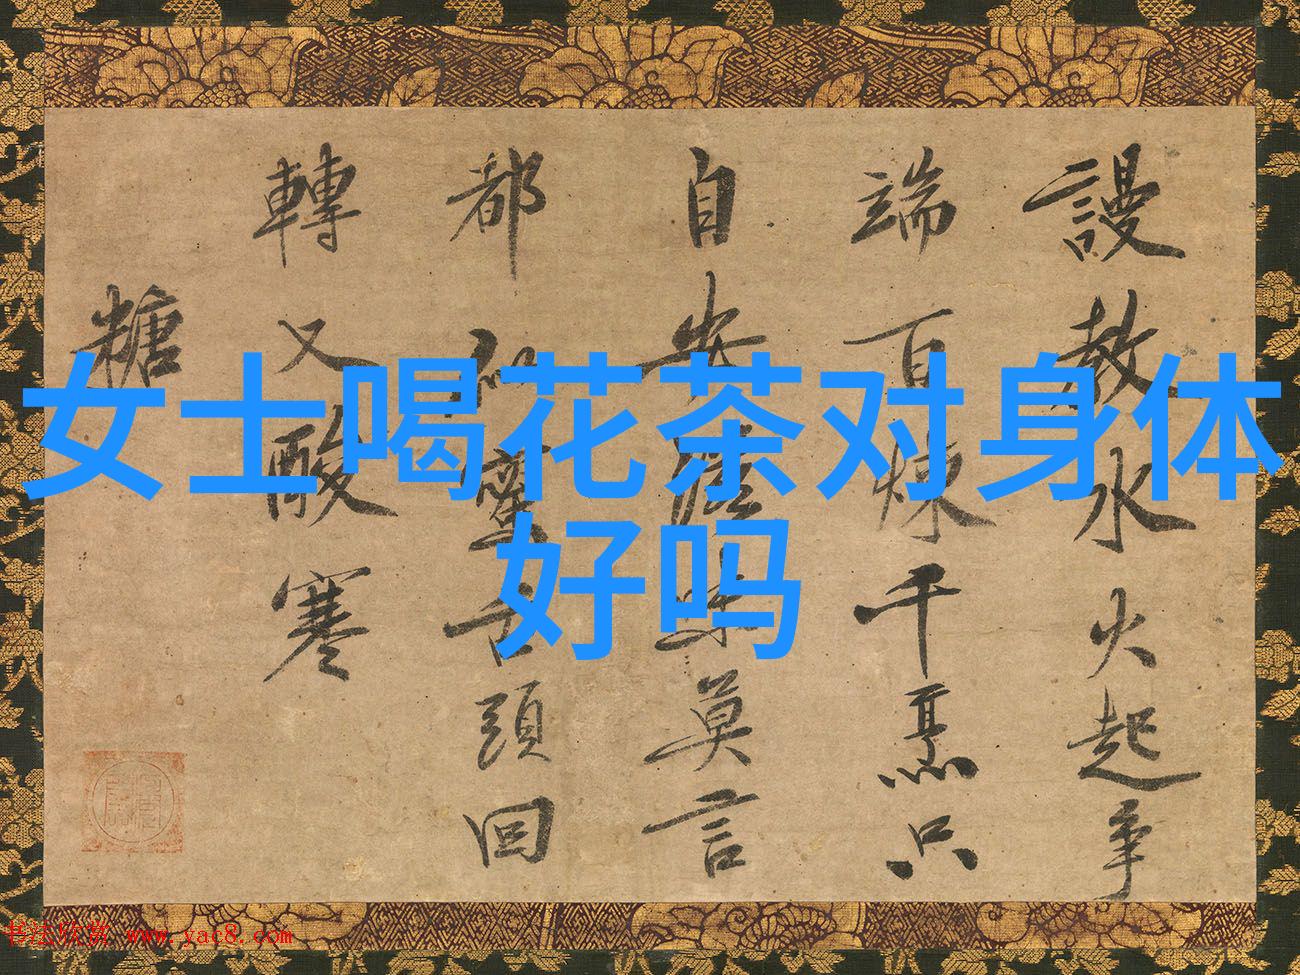 女士喝花茶对身体
好吗
謾教水火起爭
端百煉千熏只
自安味莫言
都舌頭回
轉又酸寒
糖
书法欣赏 www.yac8.com